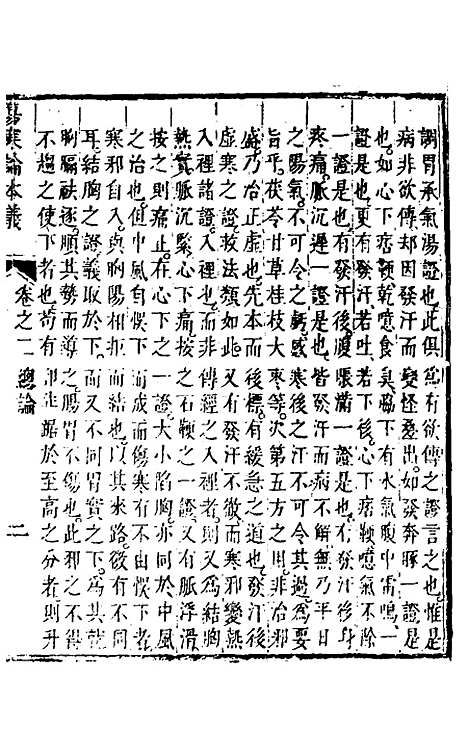 調胃承氣湯證也此俱爲有欲傳之證言之也惟是
病非欲傳却因發汗而變怪疊出如發奔豚一證是
也如心下痞鞕乾噫食臭脇下有水氣腹中雷鳴一
證是也更有發汗若吐若下後心下痞鞕噫氣不除
一證是也有發汗後腹脹滿一證是也有發汗後身
疼痛脈沉遲一證是也皆發汗而病不解無乃平日
之陽氣不可令之虧感寒後之汗不可令其過爲可
旨乎茯苓甘草桂枝大棗等次第五方之用非治邪
盛乃治正虛也先本而後標有緩急之道也發汗後
虛寒之證救法類如此又有發汗不徹而寒邪變熱
入裡諸證入裡也而非傳經之入裡也則又爲結胸
熱實脈沉緊心下痛按之石鞕一證又有脈浮滑
按之則痛正在心下之一證大小陷胸亦同於中風
之治也但中風自悞下而成而傷寒有不由悞下者
寒邪自入與胸陽相拒而結也以其來路雖有不同
耳結胸之證義取於下而又不同胃實之下爲其就
胸膈祛逐順其勢而導之腸胃不傷也此邪之不得
不趨之使下者也苟有邪踞於至高之分者則升
傷寒論本義
卷之二 總論
二